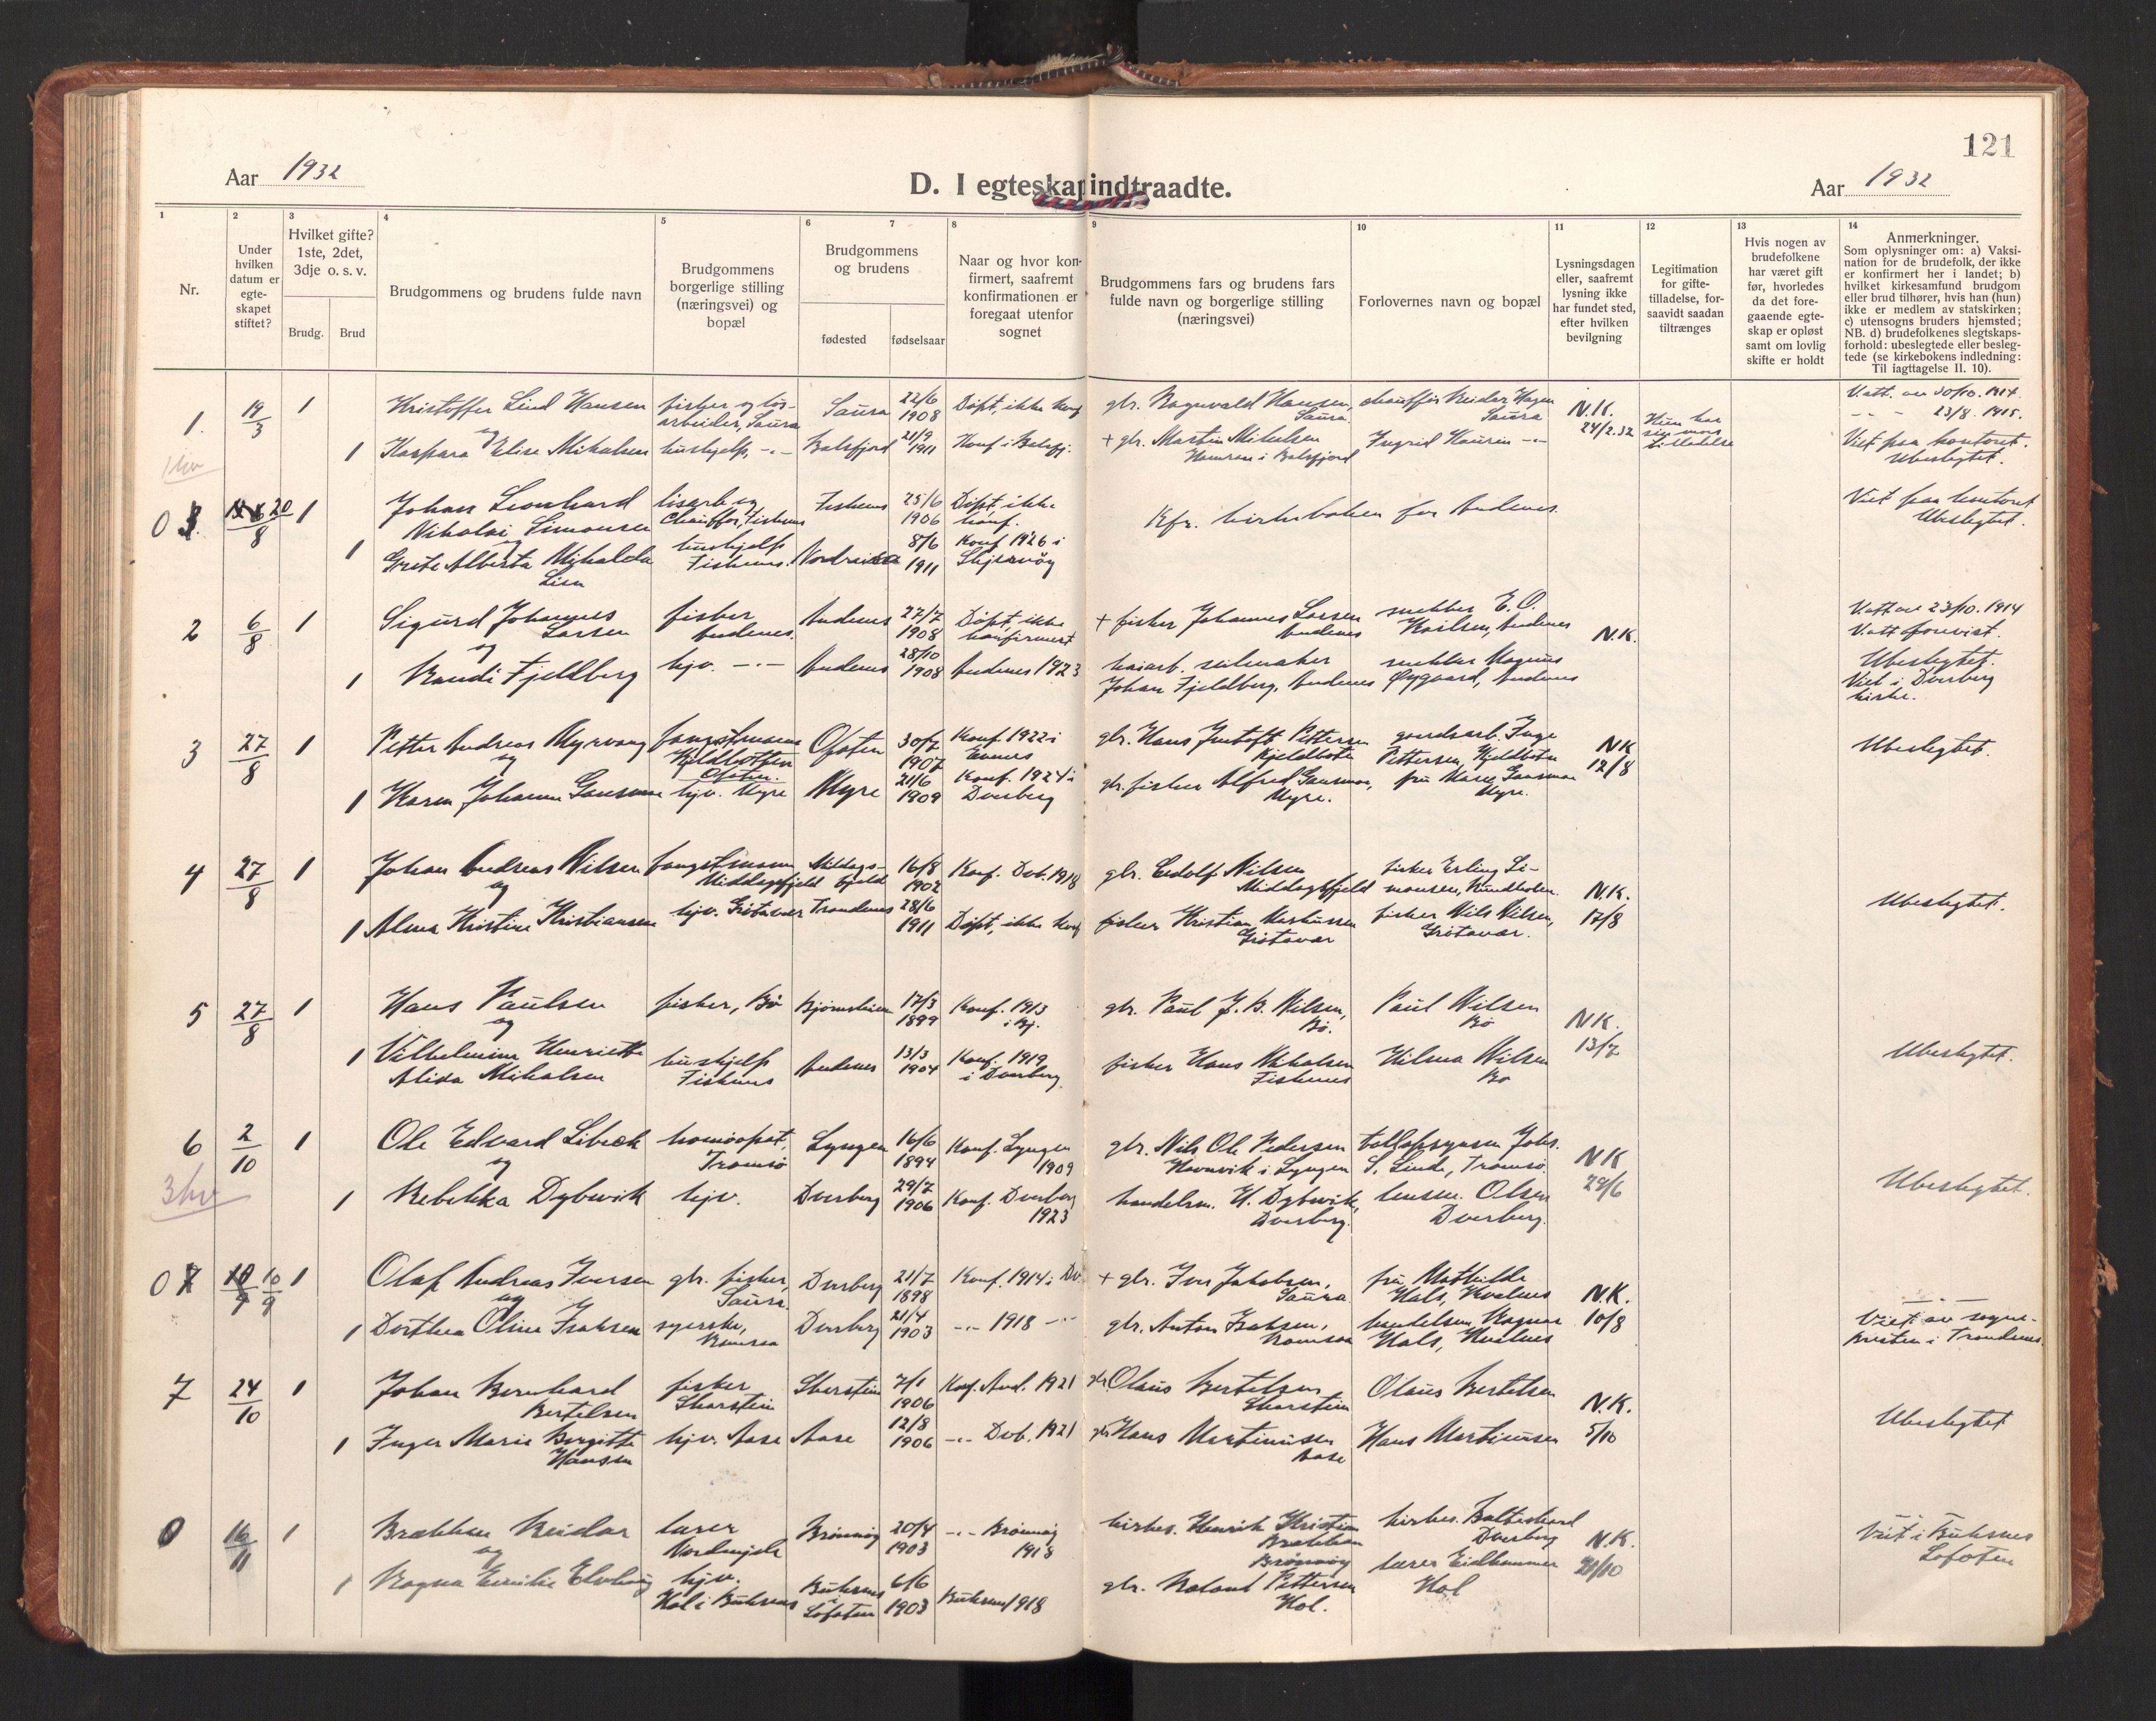 121
Aar 1932
D. I egteskap indtraadte.
Aar 1932
1
2
3
4
5
6
7
8
9
10
11
12
13
14
Nr.
Under
hvilken
datum er
egte-
skapet
stiftet?
Hvilket gifte?
1ste, 2det,
3dje o. s. v.
Brudg.
Brud
Brudgommens og brudens fulde navn
Brudgommens
borgerlige stilling
(næringsvei) og
bopæl
Brudgommens
og brudens
fødested
fødselsaar
Naar og hvor kon-
firmert, saafremt
konfirmationen er
foregaat utenfor
sognet
Brudgommens fars og brudens fars
fulde navn og borgerlige stilling
(næringsvei)
Forlovernes navn og bopæl
Lysningsdagen
eller, saafremt
lysning ikke
har fundet sted,
efter hvilken
bevilgning
Legitimation
for gifte-
tilladelse, for-
saavidt saadan
tiltrænges
Hvis nogen av
brudefolkene
har været gift
før, hvorledes
da det fore-
gaaende egte-
skap er opløst
samt om lovlig
skifte er holdt
Anmerkninger.
Som oplysninger om: a) Vaksi-
nation for de brudefolk, der ikke
er konfirmert her i landet; b)
hvilket kirkesamfund brudgom
eller brud tilhører, hvis han (hun)
ikke er medlem av statskirken;
c) utensogns bruders hjemsted;
NB. d) brudefolkenes slegtskaps-
forhold: ubeslegtede eller besleg-
tede (se kirkebokens indledning:
Til iagttagelse II. 10).
1. 19/3 1 Kristoffer Lind Hansen fisker og løs-
arbeider, Saura Saura 22/6 1908 Døpt, ikke konf
gbr. Ragnvald Hansen, Saura chauffør Reidar Hagen Saura N.K. 24/2.32
Vatt. av 30/10. 1914
-"- 23/8. 1915.
og
1 Kaspara Elise Mikalsen hushjelp, -"- Balsfjord 21/9 1911 Konf i Balsfj.
+ gbr. Martin Mikelsen
i Balsfjord Ingrid -"- Hun har
sin mors
tilladelse
Viet paa kontoret.
Ubeslegtet.
0 20/8 1 Johan Leonhard
Nikolai Simonsen
og
chauffør, Fiskenes Fiskenes 25/6 1906 Døpt, ikke
konf.
Kfr. kirkeboken for Andenes.
Viet paa kontoret
Ubeslegtet.
1 Grete Alberta Mikalda
Lien
hushjelp
Fiskenes. 8/6 1911 Konf 1926 i
Skjervøy
2 6/8 1 Sigurd Johannes
Larsen
og
fisker
Andenes. Andenes 27/7 1908 Døpt, ikke
konfirmert
+ fisker Johannes Larsen
Andenes snekker E. O.
Karlsen, Andenes N.K.
Vatt av 23/10. 1914
Vatt forevist.
1 Randi Fjeldberg hjv. -"- Andenes 28/10 1908 Andenes 1923
havarb. seilmaker
Johan Fjeldberg, Andenes snekker Magnus
Øygaard, Andenes
Ubeslegtet.
Viet i Dverberg
kirke.
3 27/8 1 Petter Andreas Myrvang
og
fangstmann
Kjeldbotten
Ofoten. Ofoten 30/7 1907 Konf. 1922 i
Evenes
gbr. Hans Justoft Pettersen
Kjeldbotn gaardsarb. Inge
Pettersen, Kjeldbotn NK
12/8
Ubeslegtet.
1 Karen Johanne Gausmo hjv. Myre Myre 21/6 1909 Konf. 1924 i
Dverberg
gbr. fisker Alfred Gausmo,
Myre. fru Gausmo
Myre.
4 27/8 1 Johan Andreas Nilsen
og
fangstmann
Middagsfjeld Middags-
fjeld 16/8 1902 Konf. Dvb. 1918
gbr. Eidolf Nilsen
Middagsfjeld fisker Erling Si-
monsen, N.K.
17/8
Ubeslegtet.
1 Alma Kristine Kristiansen hjv. Grøtavær Trondenes 28/6 1911 Døpt, ikke konf
fisker Kristian Markussen
Grøtavær fisker Nils Nilsen,
Grøtavær.
5 27/8 1 Hans Paulsen
og
fisker, Bø Bjørnskinn 17/3 1899 Konf. 1913
i Bj.
gbr. Paul J. B. Nilsen,
Bø. Paul Nilsen
Bø NK.
13/7
1 Vilhelmine Henriette
Alida Mikalsen
hushjelp
Fiskenes Andenes 13/3 1904 Konf. 1919
i Dverberg
fisker Hans Mikalsen
Fiskenes Hilma Nilsen
Bø
Ubeslegtet.
6 2/10 1 Ole Edvard Libeck
og
homøopat,
Tromsø Lyngen 16/6 1894 Konf. Lyngen
1909
gbr. Nils Ole Pedersen
i Lyngen tolloppsynsm Johs.
S. Linde, Tromsø. NK
29/6
Ubeslegtet.
1 Rebekka Dybwik hjv. Dverberg 29/7 1906 Konf. Dverberg
1923
handelsm. H. Dybwik,
Dverberg. lensm. Olsen
Dverberg.
0 10/9 1 Olaf Andreas Iversen
og
gbr. fisker,
Saura. Dverberg 21/7 1898 Konf. 1914 i Dv.
+ gbr. Iver Jakobsen,
Saura fru Mathilde
Hals, Kvalnes N.K.
10/8
1 Dorthea Oline Isaksen syerske,
Ramsaa Dverberg 21/4 1903 -"- 1918 -"-
gbr. Anton Isaksen,
Ramsaa handelsm. Ragnar
Hals, Kvalnes
Viet av sogne-
presten i Trondenes.
7 24/10 1 Johan Bernhard
Bertelsen
fisker
Skarstein Skarstein 7/1 1906 Konf. And. 1921
gbr Olaus Bertelsen
Skarstein Olaus Bertelsen N.K.
5/10
Ubeslegtet
1 Inger Marie Bergitte
Hansen
hjv. Aase Aase 12/8 1906 -"- Dvb. 1921
gbr Hans Martinussen
Aase Hans Martinussen
0 16/11 1 Brækkan Reidar
og
lærer
Nordmjele Brønnøy 20/4 1903 -"- Brønnøy
1918
kirkes. Henrik Kristian
Brækkan
Brønnøy kirkes.
Dverberg N.K.
21/10
Viet i Buksnes
Lofoten
1 Ragna Emilie hjv.
Hol i Buksnes Buksnes
i
Lofoten 6/6 1903 Buksnes 1918
gbr. Roland Pettersen
Hol. lærer Eidhammer
Hol